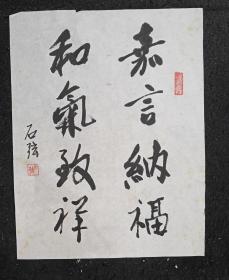 嘉言納福
和氣致祥
石弦